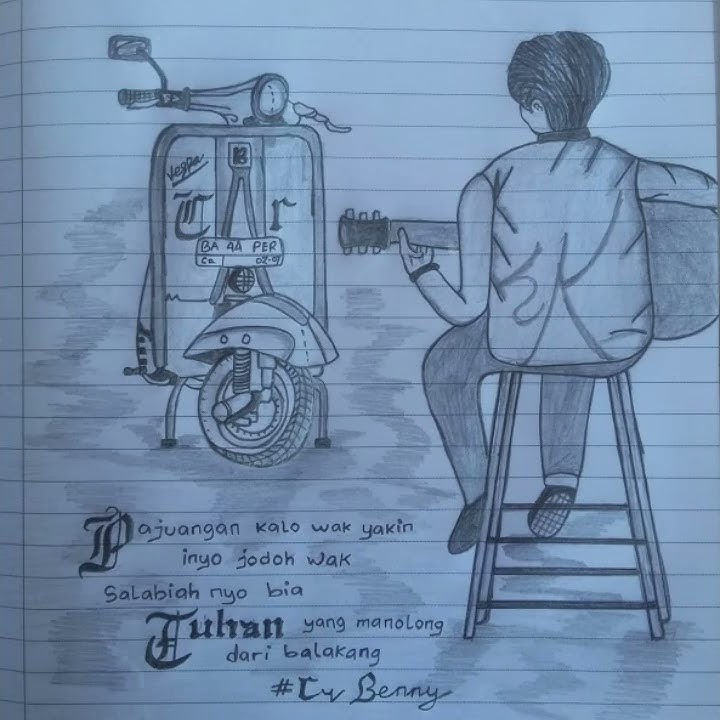 Vespa
B
T r
BA 4A PER
Pajuangan kalo wak yakin
inyo jodoh wak
Salabiah nyo bia
Tuhan yang manolong
dari balakang
#Cy Benny